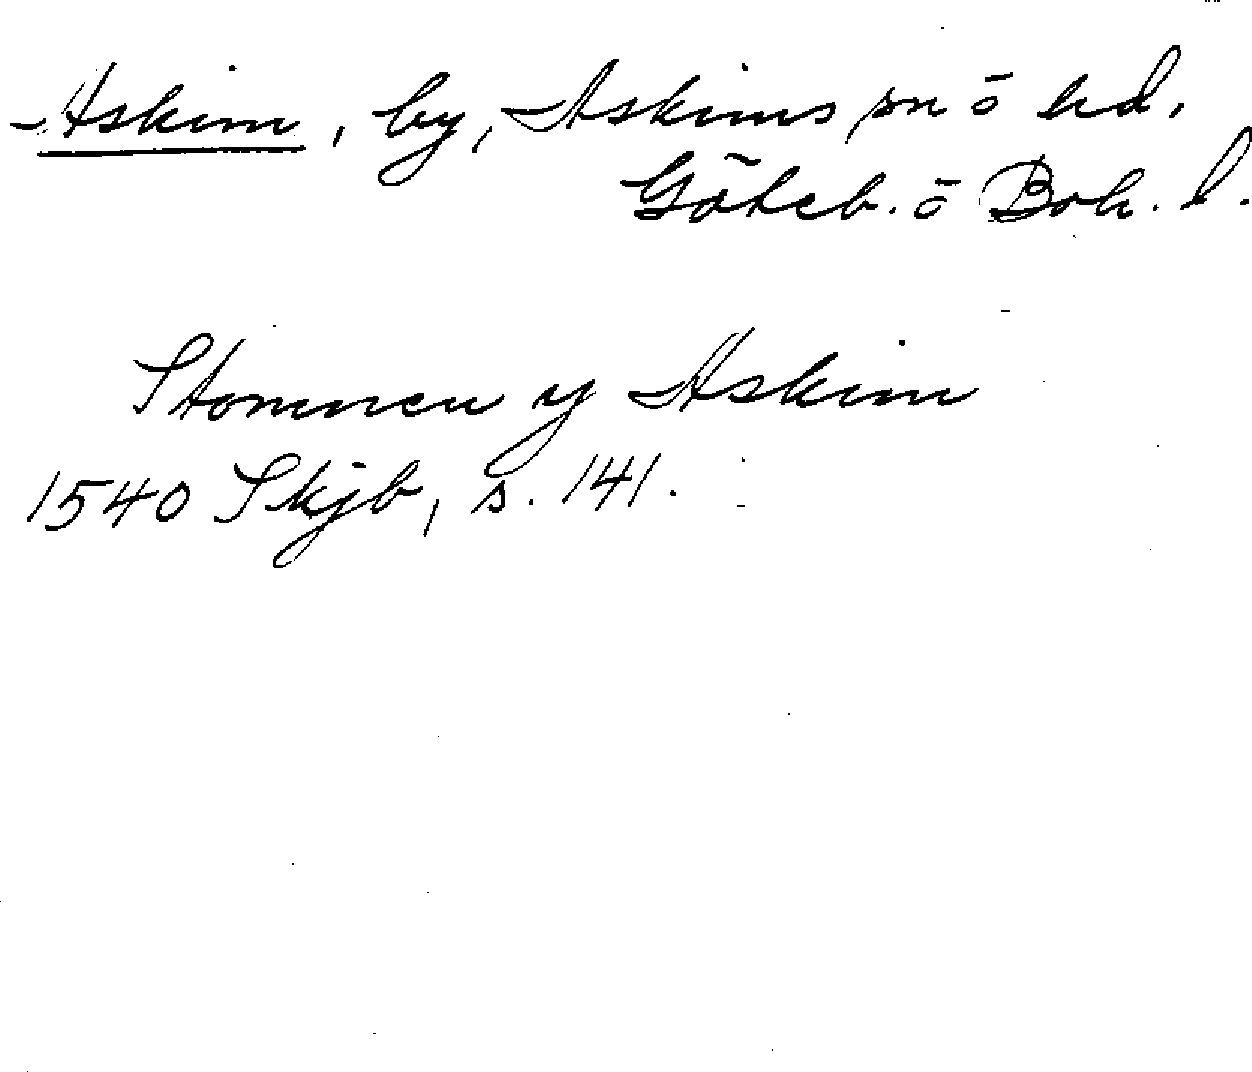 Askim, by, Askims sn o hd,
Göteb. o Boh. l.
Stomnen y Askim
1540 Skjb, s. 141.